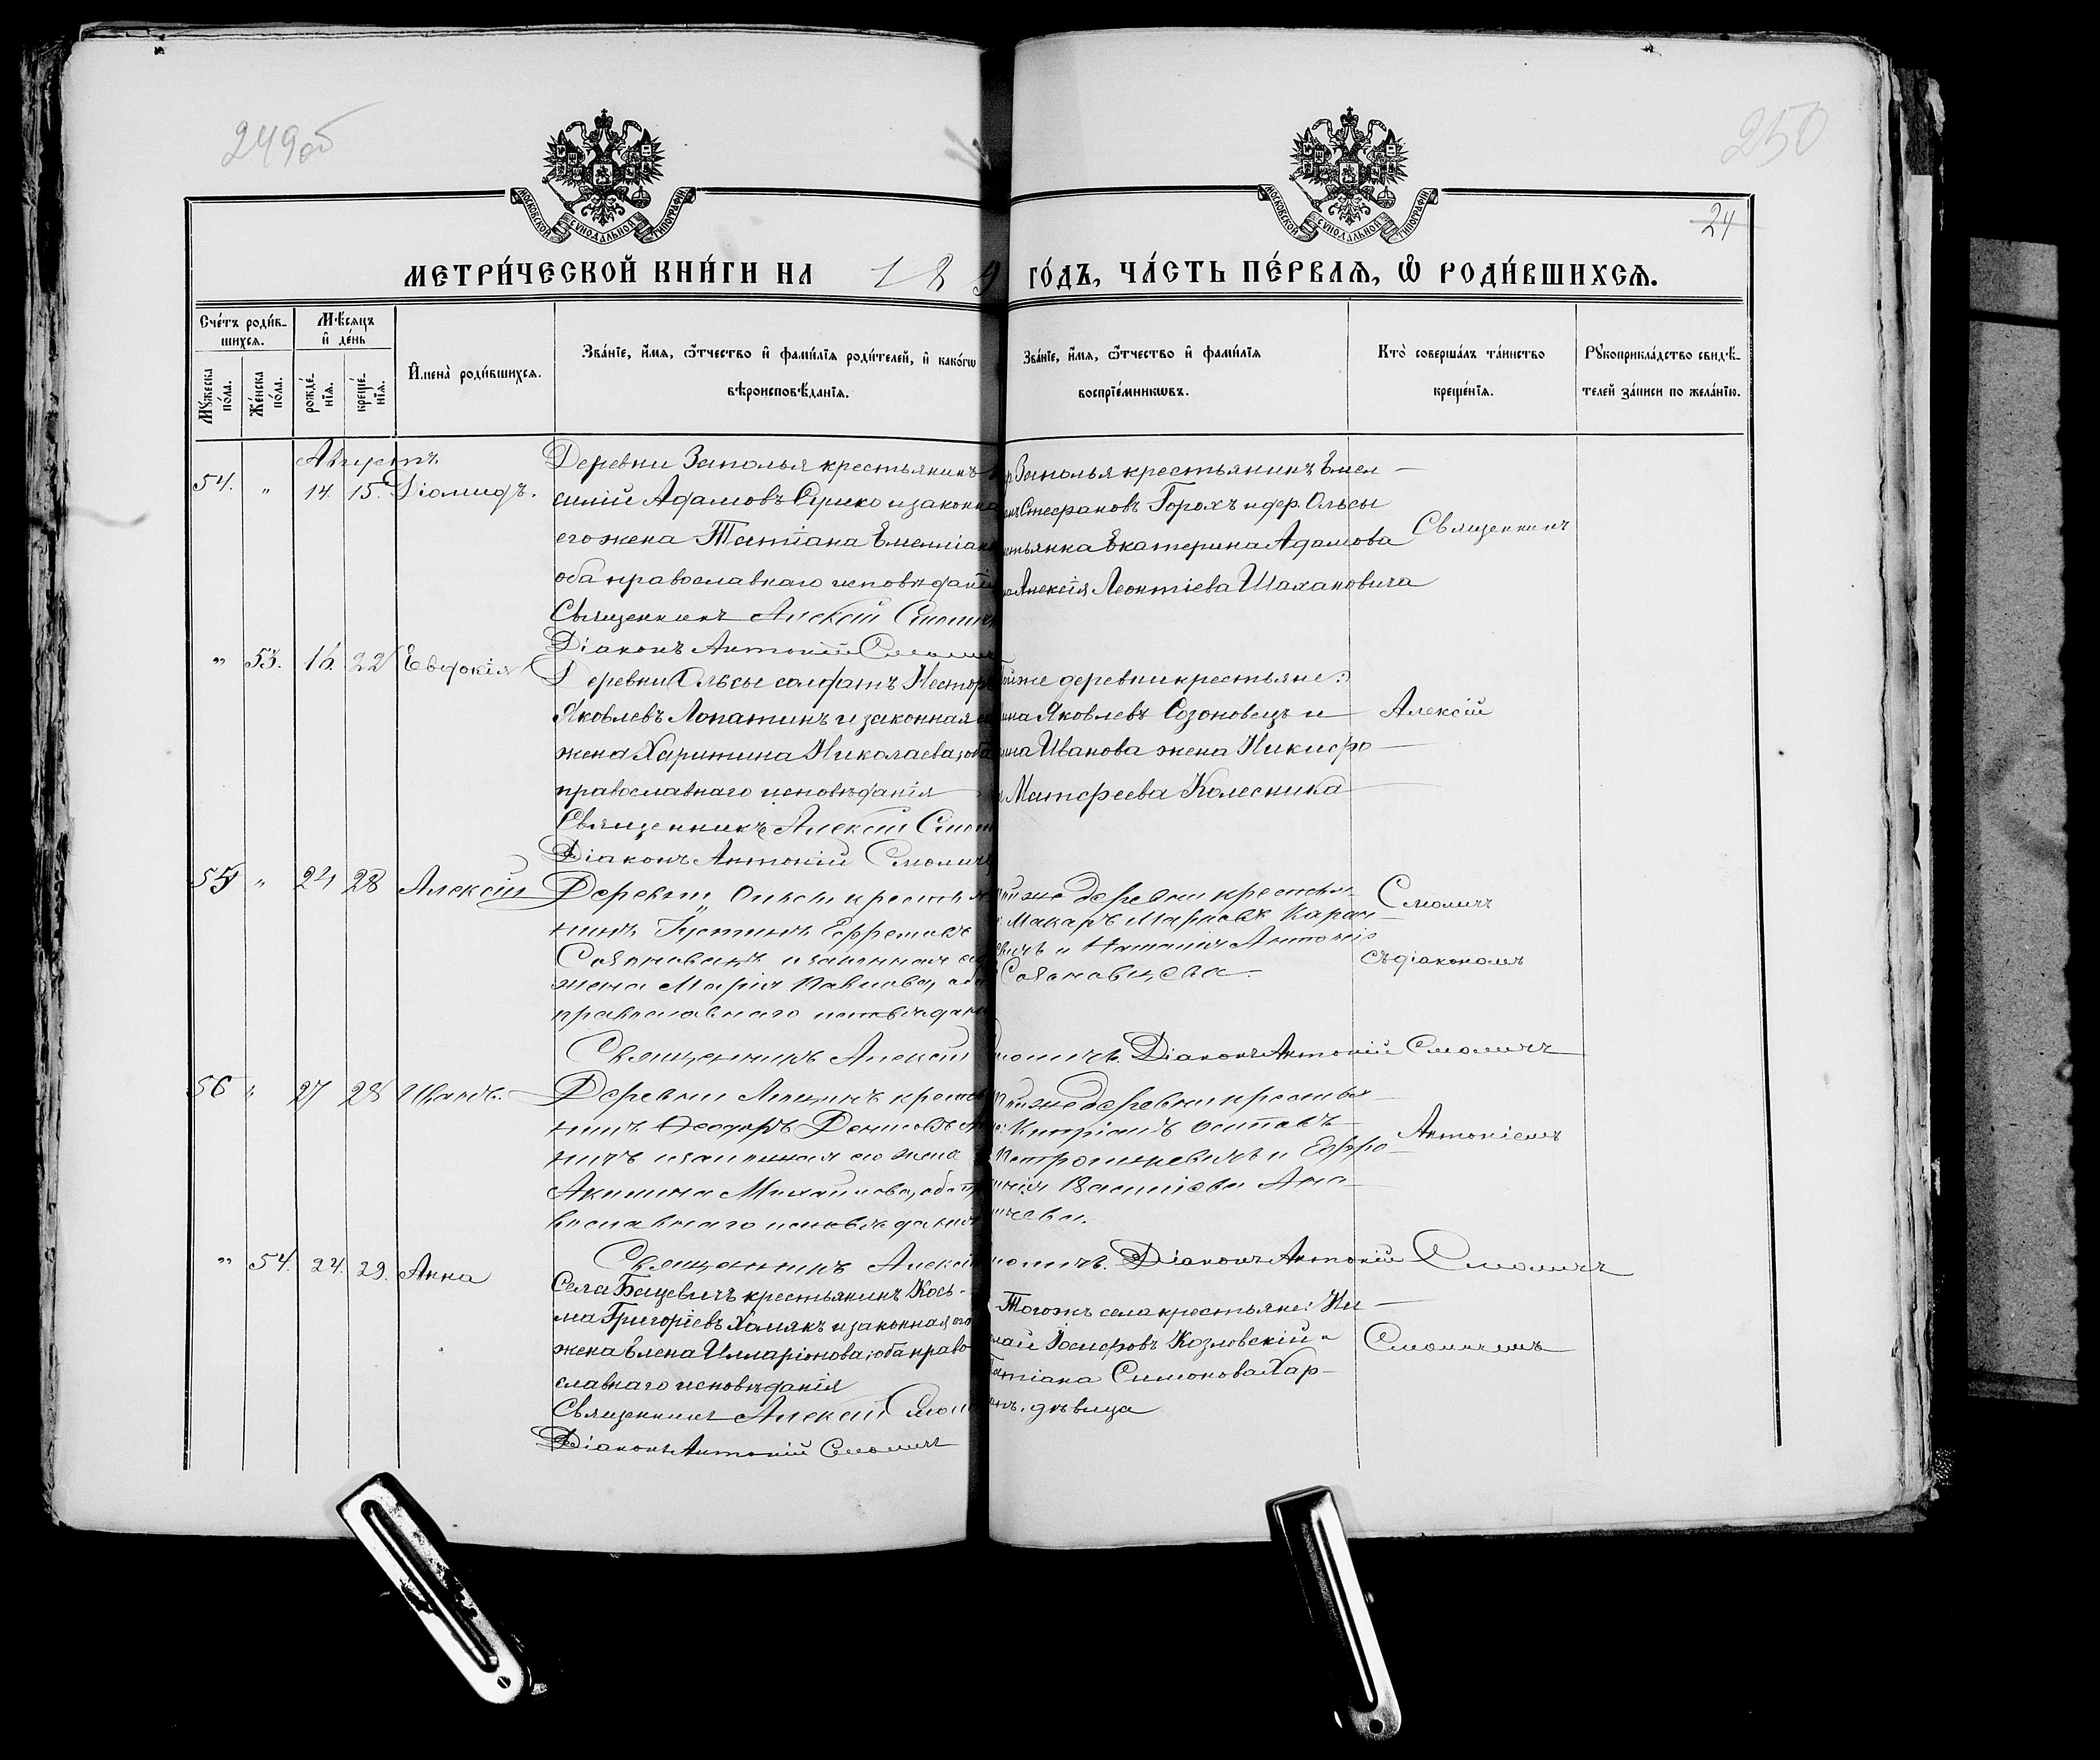 249об
250
24
МОСКОВСКОЙ СѴНОДАЛЬНОЙ ТИПОГРАФІИ
МОСКОВСКОЙ СѴНОДАЛЬНОЙ ТИПОГРАФІИ
МЕТРИ́ЧЕСКОЙ КНИ́ГИ НА 189 ГО́ДЪ, ЧА́СТЬ ПЕ́РВАѦ, Ѡ РОДИ́ВШИХСѦ.
Сче́тъ роди́в-
шихсѧ.
Мꙋ́жеска по́ла.
Же́нска по́ла.
Мѣ́сѧцъ
и де́нь
рожде́-
нїѧ.
креще́-
нїѧ.
И҆мена̀ роди́вшихсѧ.
Зва́нїе, и҆́мѧ, ѻ҆́тчество и҆ фами́лїѧ роди́телей, и҆ како́гѡ
вѣроисповѣ́данїѧ.
Зва́нїе, и҆́мѧ, ѻ҆́тчество и҆ фами́лїѧ
воспрїе́мникѡвъ.
Кто̀ соверша́лъ та́инство
креще́нїѧ.
Рꙋкоприкла́дство свидѣ́-
телей за́писи по жела́нїю.
Августъ
54. " 14. 15. Діомидъ.
Деревни Заполья крестьянинъ
силій Адамовъ и законна
его жена Татіана Емеліан
оба православнаго исповѣданія
Священникъ Алексій Смолич
Діаконъ Антоній Смолич
Заполья крестьянинъ Емел-
Стефановъ Горохъ и дер. Ольсы
тьянка Екатерина Адамова
Алексія Леонтіева Шахановича
Священникъ
" 53. 16. 22 Евдокія
Деревни Ольсы солдатъ Нестор
Яковлевъ Лопатинъ и законная е
жена Харитина Николаева; оба
православнаго исповѣданія
Священникъ Алексій Смол
Діаконъ Антоній Смоличъ
же деревни крестьяне:
Яковлевъ Созоновецъ и
Иванова жена Никифо
Матфеева Колесника
Алексій
55 " 24 28 Алексій
Деревни Ольсы крестья
нинъ Іустинъ Ефремовъ
Созоновецъ и законная е
жена Марія Павлова, об
православнаго исповѣдан
Священникъ Алексій Смоличъ. Діаконъ Антоній Смоличъ
же деревни крестья-
Макаръ Марковъ Каран-
вичъ и Наталія Антоніе
Созоновцева.
Смоличъ
съ діакономъ
56 " 27 28 Иванъ.
Деревни крест
нинъ Ѳеодоръ Денисовъ
и законная его жена
Акилина Михаилова, оба п
вославнаго исповѣданія
Священникъ Алексій Смоличъ. Діаконъ Антоній Смоличъ
же деревни крестья-
Кипріанъ
Петрошкевичъ и Ефро-
Василіева Ана-
чева.
Антоніемъ
" 54. 24. 29. Анна
Села Бацевичъ крестьянинъ Кось-
ма Григоріевъ Хомякъ и законная его
жена Елена Илларіонова; оба право-
славнаго исповѣданія
Священникъ Алексій Смол
Діаконъ Антоній Смоличъ
Тогожъ села крестьяне: Ни-
лай Іосифовъ Козловскій и
Татіана Симонова Хар-
дѣвица
Смоличемъ